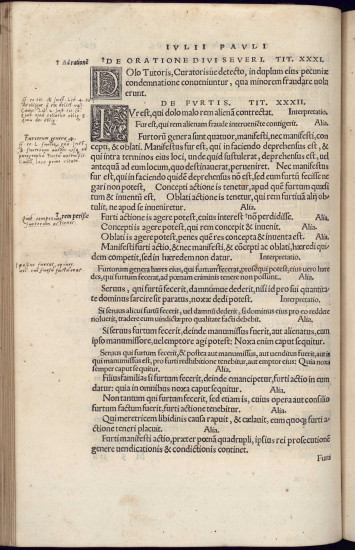 IVLII PAVLI
† Ad rationē
† DE ORATIONE DIVI SEVERI. TIT. XXXI.
DOlo Tutoris, Curatorisue detecto, in duplum eius pecuniæ
condemnatione conueniuntur, qua minorem fraudare voluerunt.
DE FVRTIS. TIT. XXXII.
FVr est, qui dolo malo rem alienā contrectat. Interpretatio.
Fur est, qui rem alienam fraude interueniēte contigerit. Alia.
Furtorū genera sunt quatuor, manifesti, nec manifesti, concepti,
& oblati. Manifestus fur est, qui in faciendo deprehensus est, &
qui intra terminos eius loci, unde quid sustulerat, deprehensus est, uel
antequā ad eum locum, quo destinauerat, perueniret. Nec manifestus
fur est, qui in faciendo quidē deprehensus nō est, sed eum furtū fecisse negari
non potest. Concepti actione is tenetur, apud quē furtum quæsitum
& inuentū est. Oblati actione is tenetur, qui rem furtiuā alij obtulit,
ne apud se inueniretur. Alia.
Furti actione is agere potest, cuius interest † rem nō perdidisse. Alia.
Concepti is agere potest, qui rem concepit & inuenit. Alia.
Oblati is agere potest, penes quē res concepta & inuenta est. Alia.
Manifesti furti actio, & nec manifesti, & concepti ac oblati, hæredi quidem
competit, sed in hæredem non datur. Interpretatio.
Furtorum genera hæres eius, qui furtum fecerat, prosequi potest, eius uero hæredes,
qui furtum fecerat, ad pœnam criminis teneri non possunt. Alia.
Seruus, qui furtū fecerit, damnumue dederit, nisi id pro sui quantitate
dominus sarcire sit paratus, noxæ dedi potest. Interpretatio.
Si seruus alicui furtū fecerit, uel damnū dederit, si dominus eius pro eo reddere
noluerit, tradere eum uindictæ pro qualitate facti debebit. Alia.
Si seruus furtum fecerit, deinde manumissus fuerit, aut alienatus, cum
ipso manumissore, uel emptore agi potest: Noxa enim caput sequitur.
Seruus qui furtum fecerit, & postea aut manumissus, aut uenditur fuerit, aut is
qui manumissus est, pro furti redhibitione tenebitur, aut emptor eius: Quia noxa
semper caput sequitur. Alia.
Filiusfamilias si furtum fecerit, deinde emancipetur, furti actio in eum
datur: quia in omnibus noxa caput sequitur. Alia.
Non tantum qui furtum fecerit, sed etiam is, cuius opera aut consilio
furtum factum fuerit, furti actione tenebitur. Alia.
Qui meretricem libidinis causa rapuit, & cælauit, eum quoq; furti actione
teneri placuit. Alia.
Furti manifesti actio, præter pœnā quadrupli, ipsius rei prosecutionē
genere uendicationis & condictionis continet.
Furti